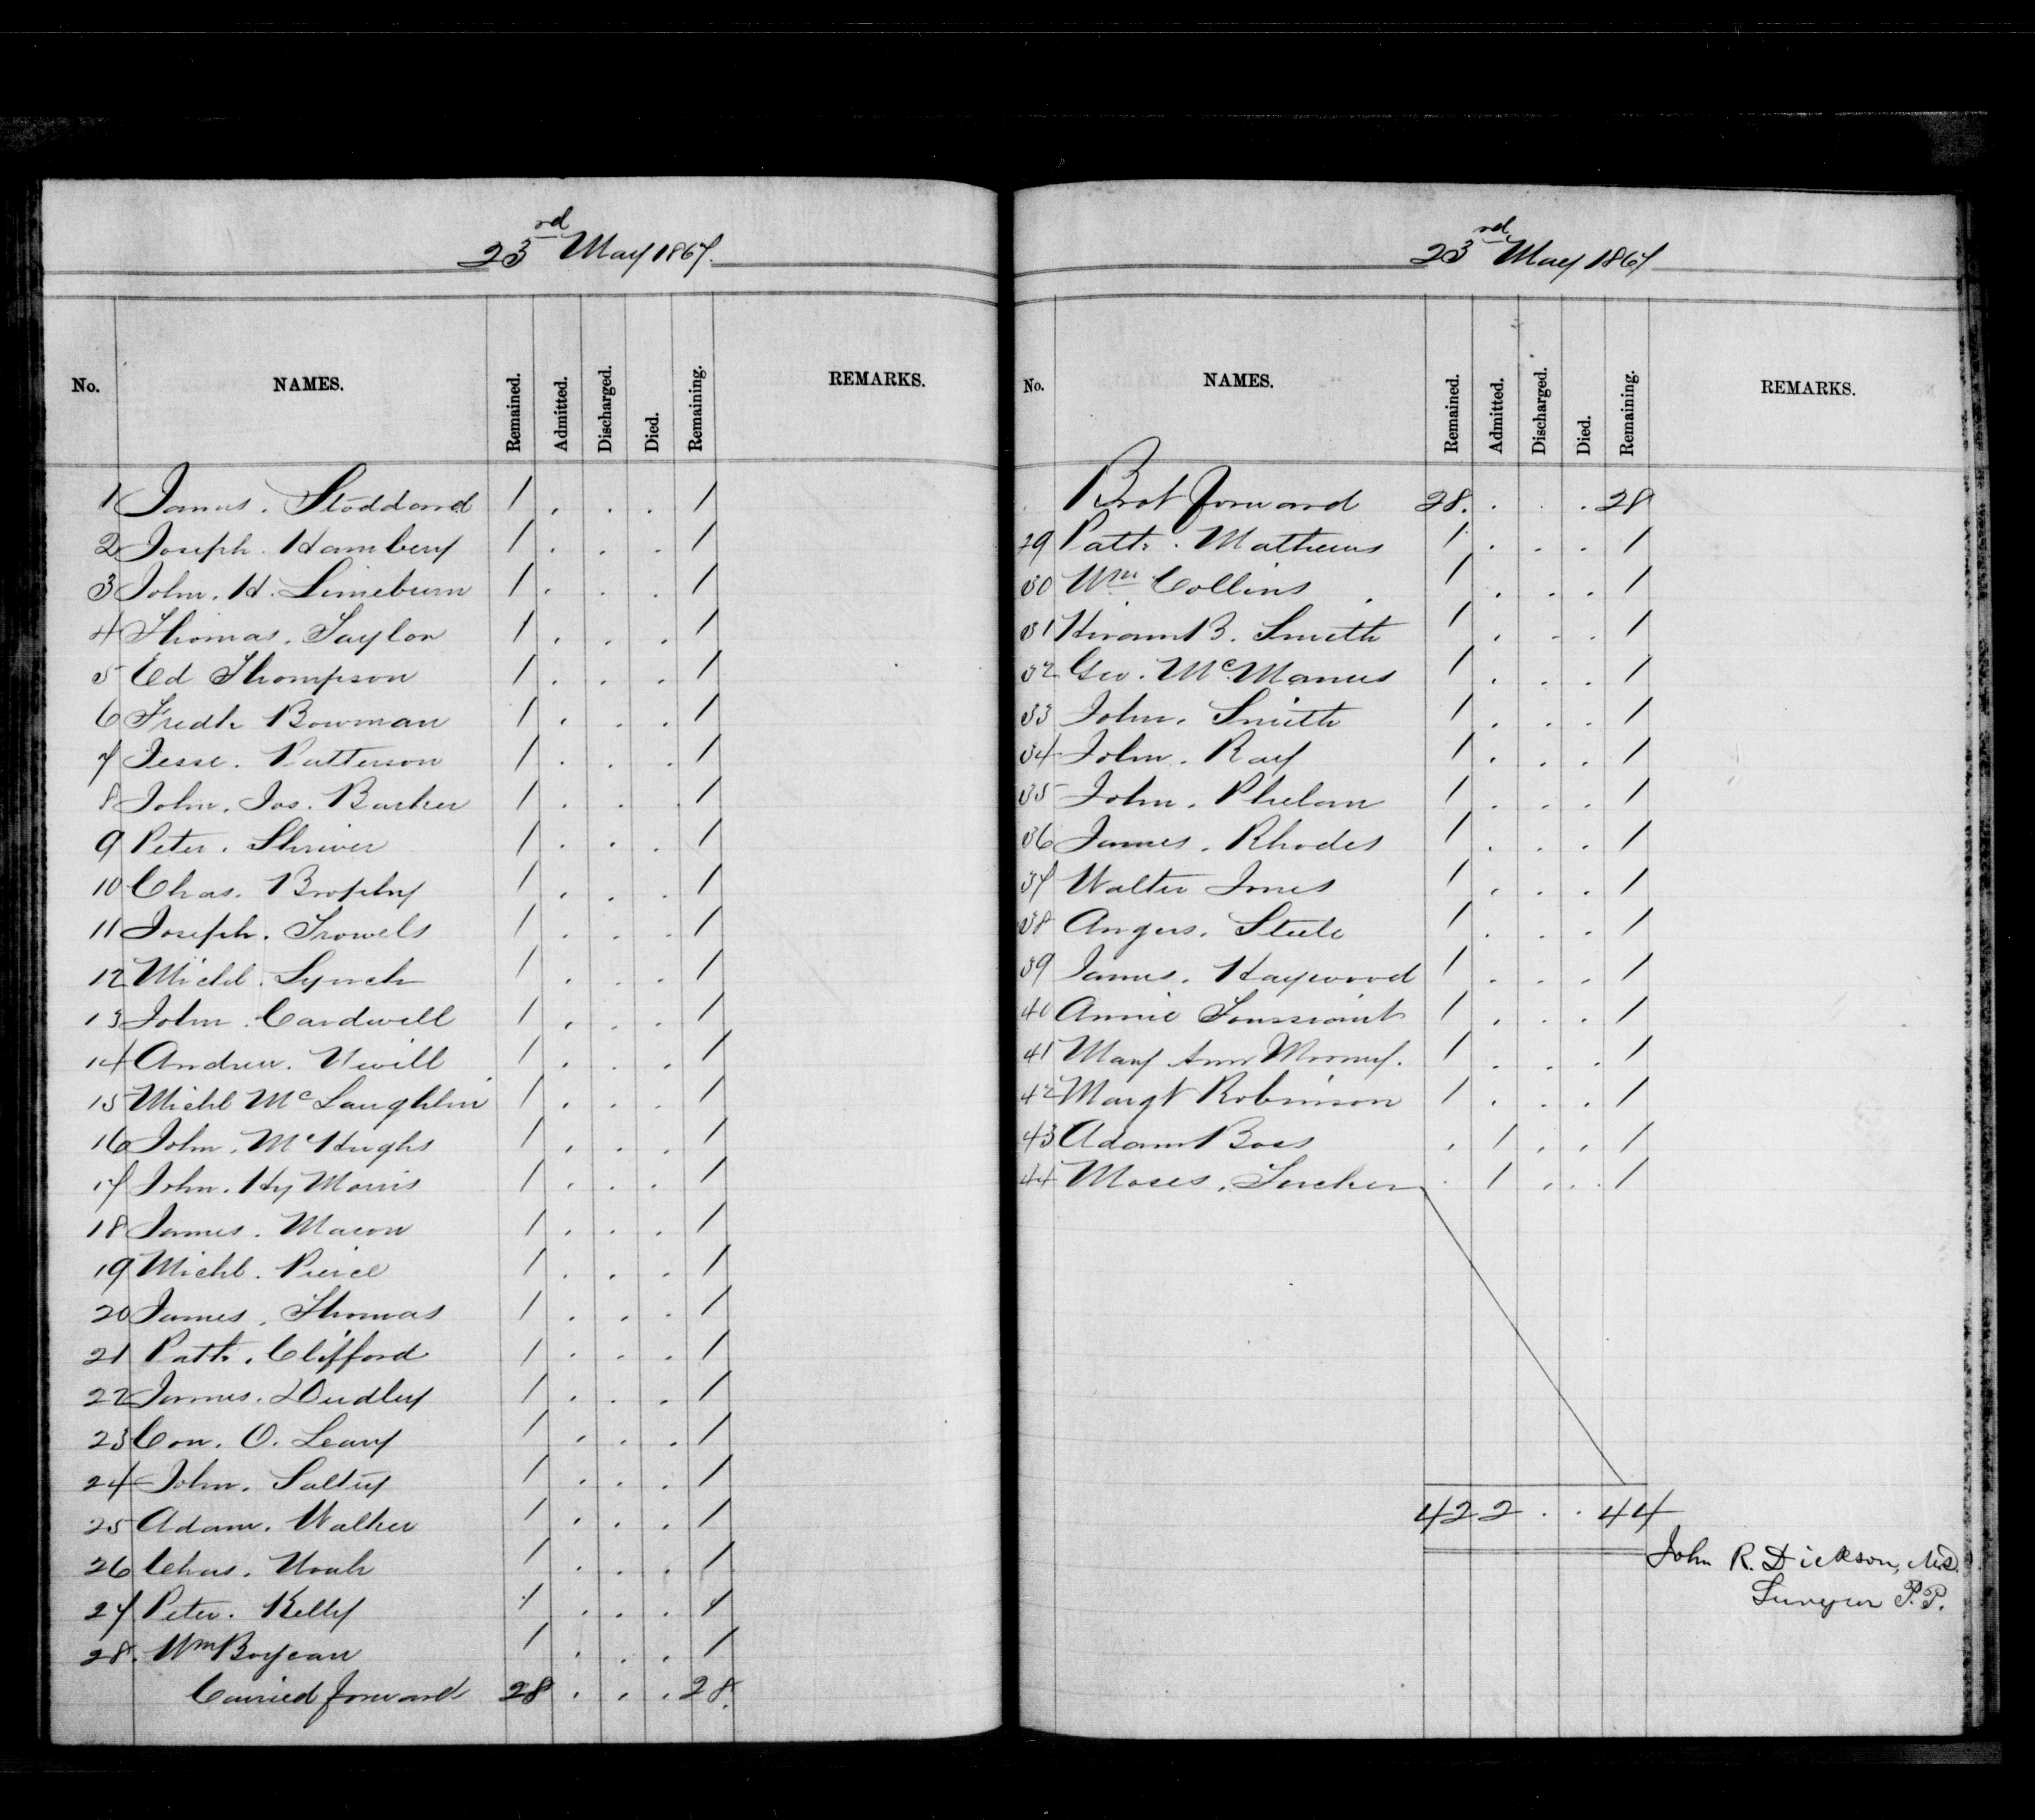 23rd May 1867.
No. NAMES. Remained. Admitted. Discharged. Died. Remaining. REMARKS.
1 James. Stoddard 1 . . . 1
2 Joseph. Hambery 1 . . . 1
3 John. H. Limeburn 1 . . . 1
4 Thomas. Taylor 1 . . . 1
5 Ed Thompson 1 . . . 1
6 Fredk Bowman 1 . . . 1
7 Jesse. Patterson 1 . . . 1
8 John. Jos. Barker 1 . . . 1
9 Peter. Shriver 1 . . . 1
10 Chas. Brophy 1 . . . 1
11 Joseph. Trowels 1 . . . 1
12 Michl. Lynch 1 . . . 1
13 John. Cardwell 1 . . . 1
14 Andrew. Nevill 1 . . . 1
15 Michl McLaughlin 1 . . . 1
16 John. McHughs 1 . . . 1
17 John. Hy Morris 1 . . . 1
18 James. Macon 1 . . . 1
19 Michl. Pierce 1 . . . 1
20 James. Thomas 1 . . . 1
21 Patk. Clifford 1 . . . 1
22 James. Dudley 1 . . . 1
23 Con. O. Leary 1 . . . 1
24 John. Saltry 1 . . . 1
25 Adam. Walker 1 . . . 1
26 Chas. Noah 1 . . . 1
27 Peter. Kelly 1 . . . 1
28. Wm Boyeau 1 . . . 1
Carried forward 28 . . . 28.
23rd May 1867
No. NAMES. Remained. Admitted. Discharged. Died. Remaining. REMARKS.
Brot forward 28. . . . 28
29 Patk. Mathews 1 . . . 1
30 Wm Collins 1 . . . 1
31 Hiram B. Smith 1 . . . 1
32 Geo. McManus 1 . . . 1
33 John. Smith 1 . . . 1
34 John. Ray 1 . . . 1
35 John. Phelan 1 . . . 1
36 James. Rhodes 1 . . . 1
37 Walter Jones 1 . . . 1
38 Angus. Steele 1 . . . 1
39 James. Haywood 1 . . . 1
40 Annie Toussaint 1 . . . 1
41 Mary Ann Mooney. 1 . . . 1
42 Margt Robinson 1 . . . 1
43 Adam Boes . 1 . . 1
44 Moses. . 1 . . 1
42 2 . . 44
John R. Dickson, M.D.
Surgeon P.P.